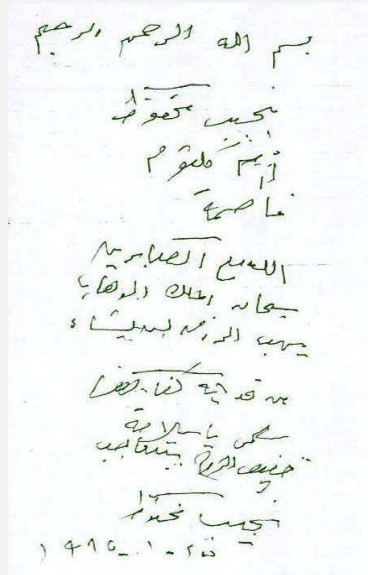 بسم الله الرحمن الرحيم
نجيب محفوظ
أم كلثوم
فاطمة
الله مع الصابرين
سبحان الملك الوهاب
يهب الرزق لمن يشاء
من قد ايه كنا هنا
سلمى يا سلامة
خفيف الروح بيتعاجب
نجيب محفوظ